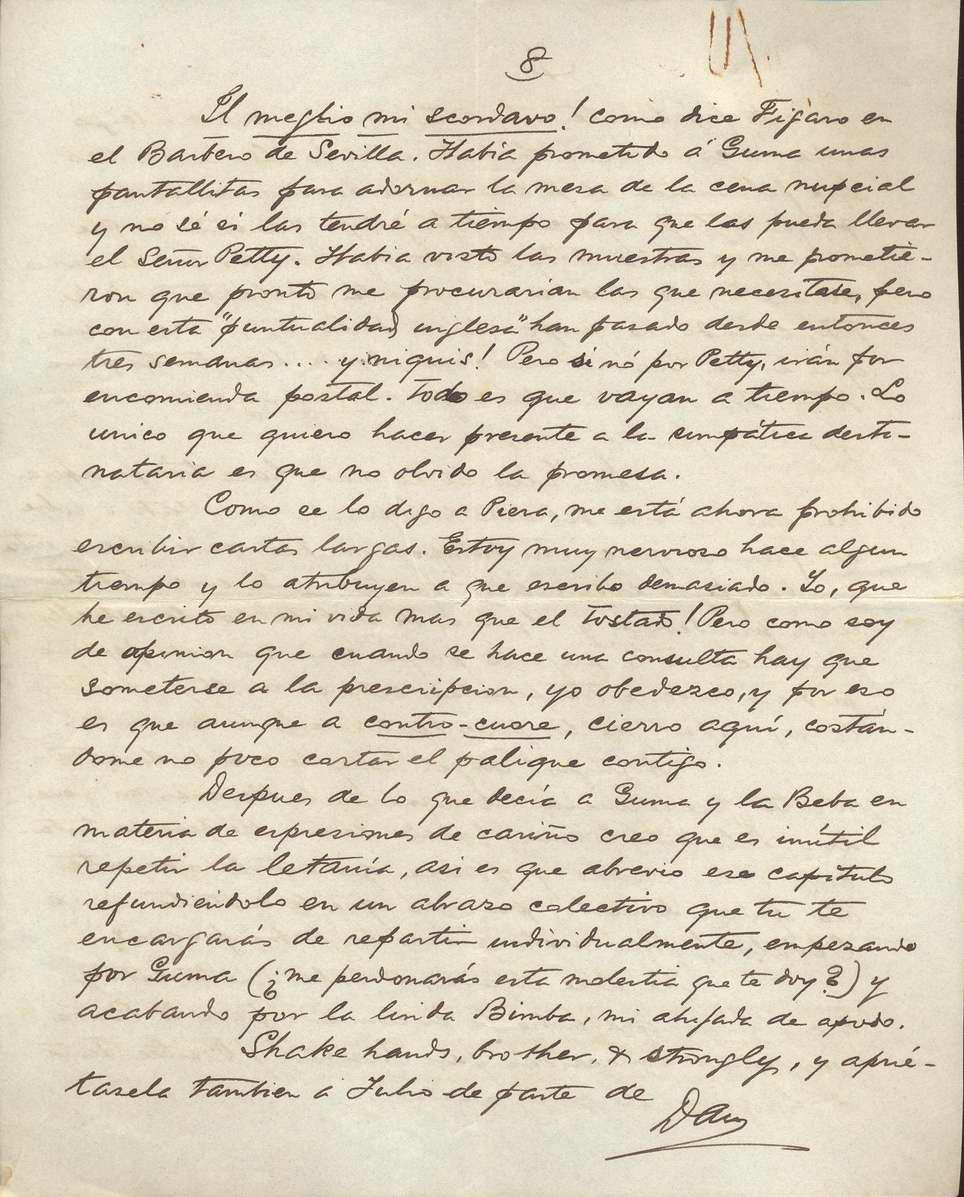 8
Il meglio mi scordavo! como dice Fígaro en
el Barbero de Sevilla. Había prometido á Guma unas
pantallitas para adornar la mesa de la cena nupcial
y no sé si las tendré a tiempo para que las pueda llevar
el Señor Petty. Habia visto las muestras y me prometie-
ron que pronto me procurarian las que necesitase, pero
con esta "puntualidad inglesa" han pasado desde entonces
tres semanas .... y niquis! Pero si nó por Petty, irán por
encomienda postal. Todo es que vayan a tiempo. Lo
unico que quiero hacer presente a la simpática desti-
nataria es que no olvido la promesa.
Como se lo digo a Piera, me está ahora prohibido
escribir cartas largas. Estoy muy nervioso hace algun
tiempo y lo atribuyen a que escribo demasiado. Yo, que
he escrito en mi vida mas que el Tostado! Pero como soy
de opinion que cuando se hace una consulta hay que
someterse a la prescripcion, yo obedezco, y por eso
es que aunque a contro-cuore, cierro aquí, costán-
dome no poco cortar el palique contigo.
Despues de lo que decía a Guma y la Beba en
materia de espresiones de cariño creo que es inútil
repetir la letanía, asi es que abrevio ese capitulo
refundiéndolo en un abrazo colectivo que tu te
encargarás de repartir individualmente, empezando
por Guma (¿me perdonarás esta molestia que te doy?) y
acabando por la linda Bimba, mi ahijada de apodo.
Shake hands, brother, & strongly, y aprié-
tasela tambien á Julio de parte de